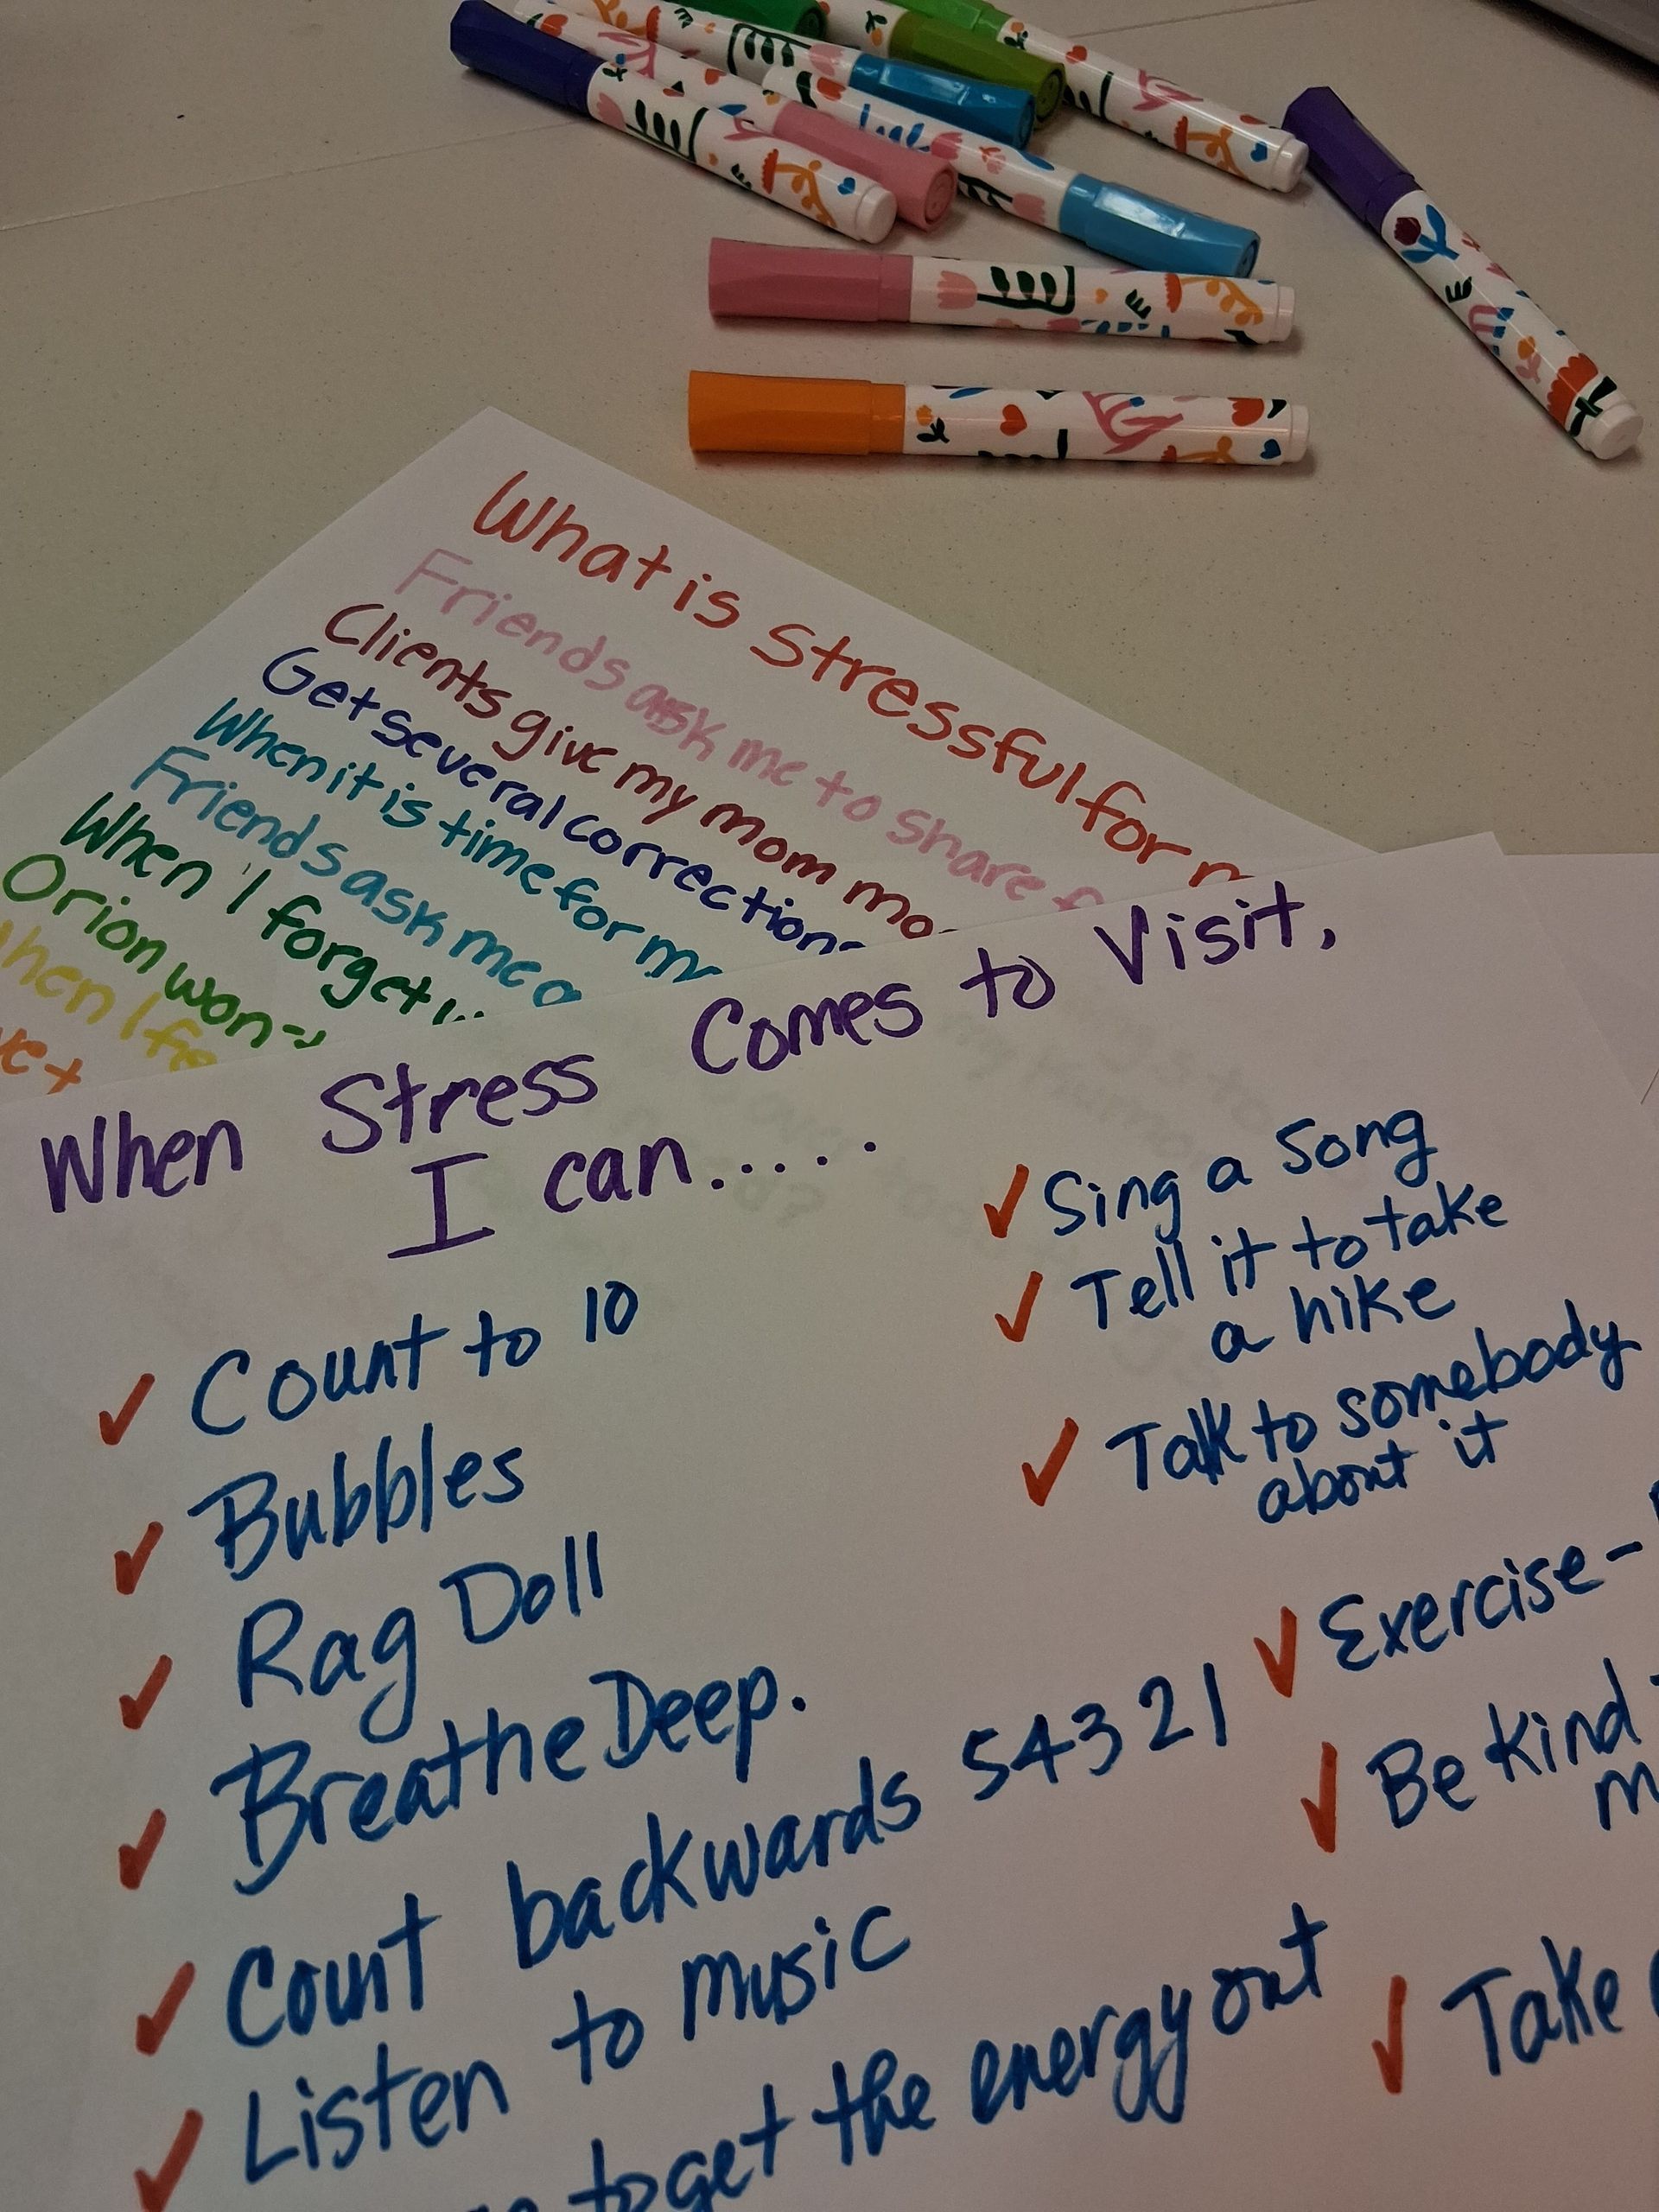 What is Stressful for
Friends ask me to share
Clients give my mom mo
Get several correction
When it is time for m
Friends ask me a
When I forget...
Orion won-
hen I fe
When Stress Comes to Visit,
I can.....
✓ Count to 10
✓ Bubbles
✓ Rag Doll
✓ Breathe Deep.
✓ Count backwards 54321
✓ Listen to music
to get the energy out
✓ Sing a Song
✓ Tell it to take
a hike
✓ Talk to somebody
about it
✓ Exercise-
✓ Be kind
✓ Take